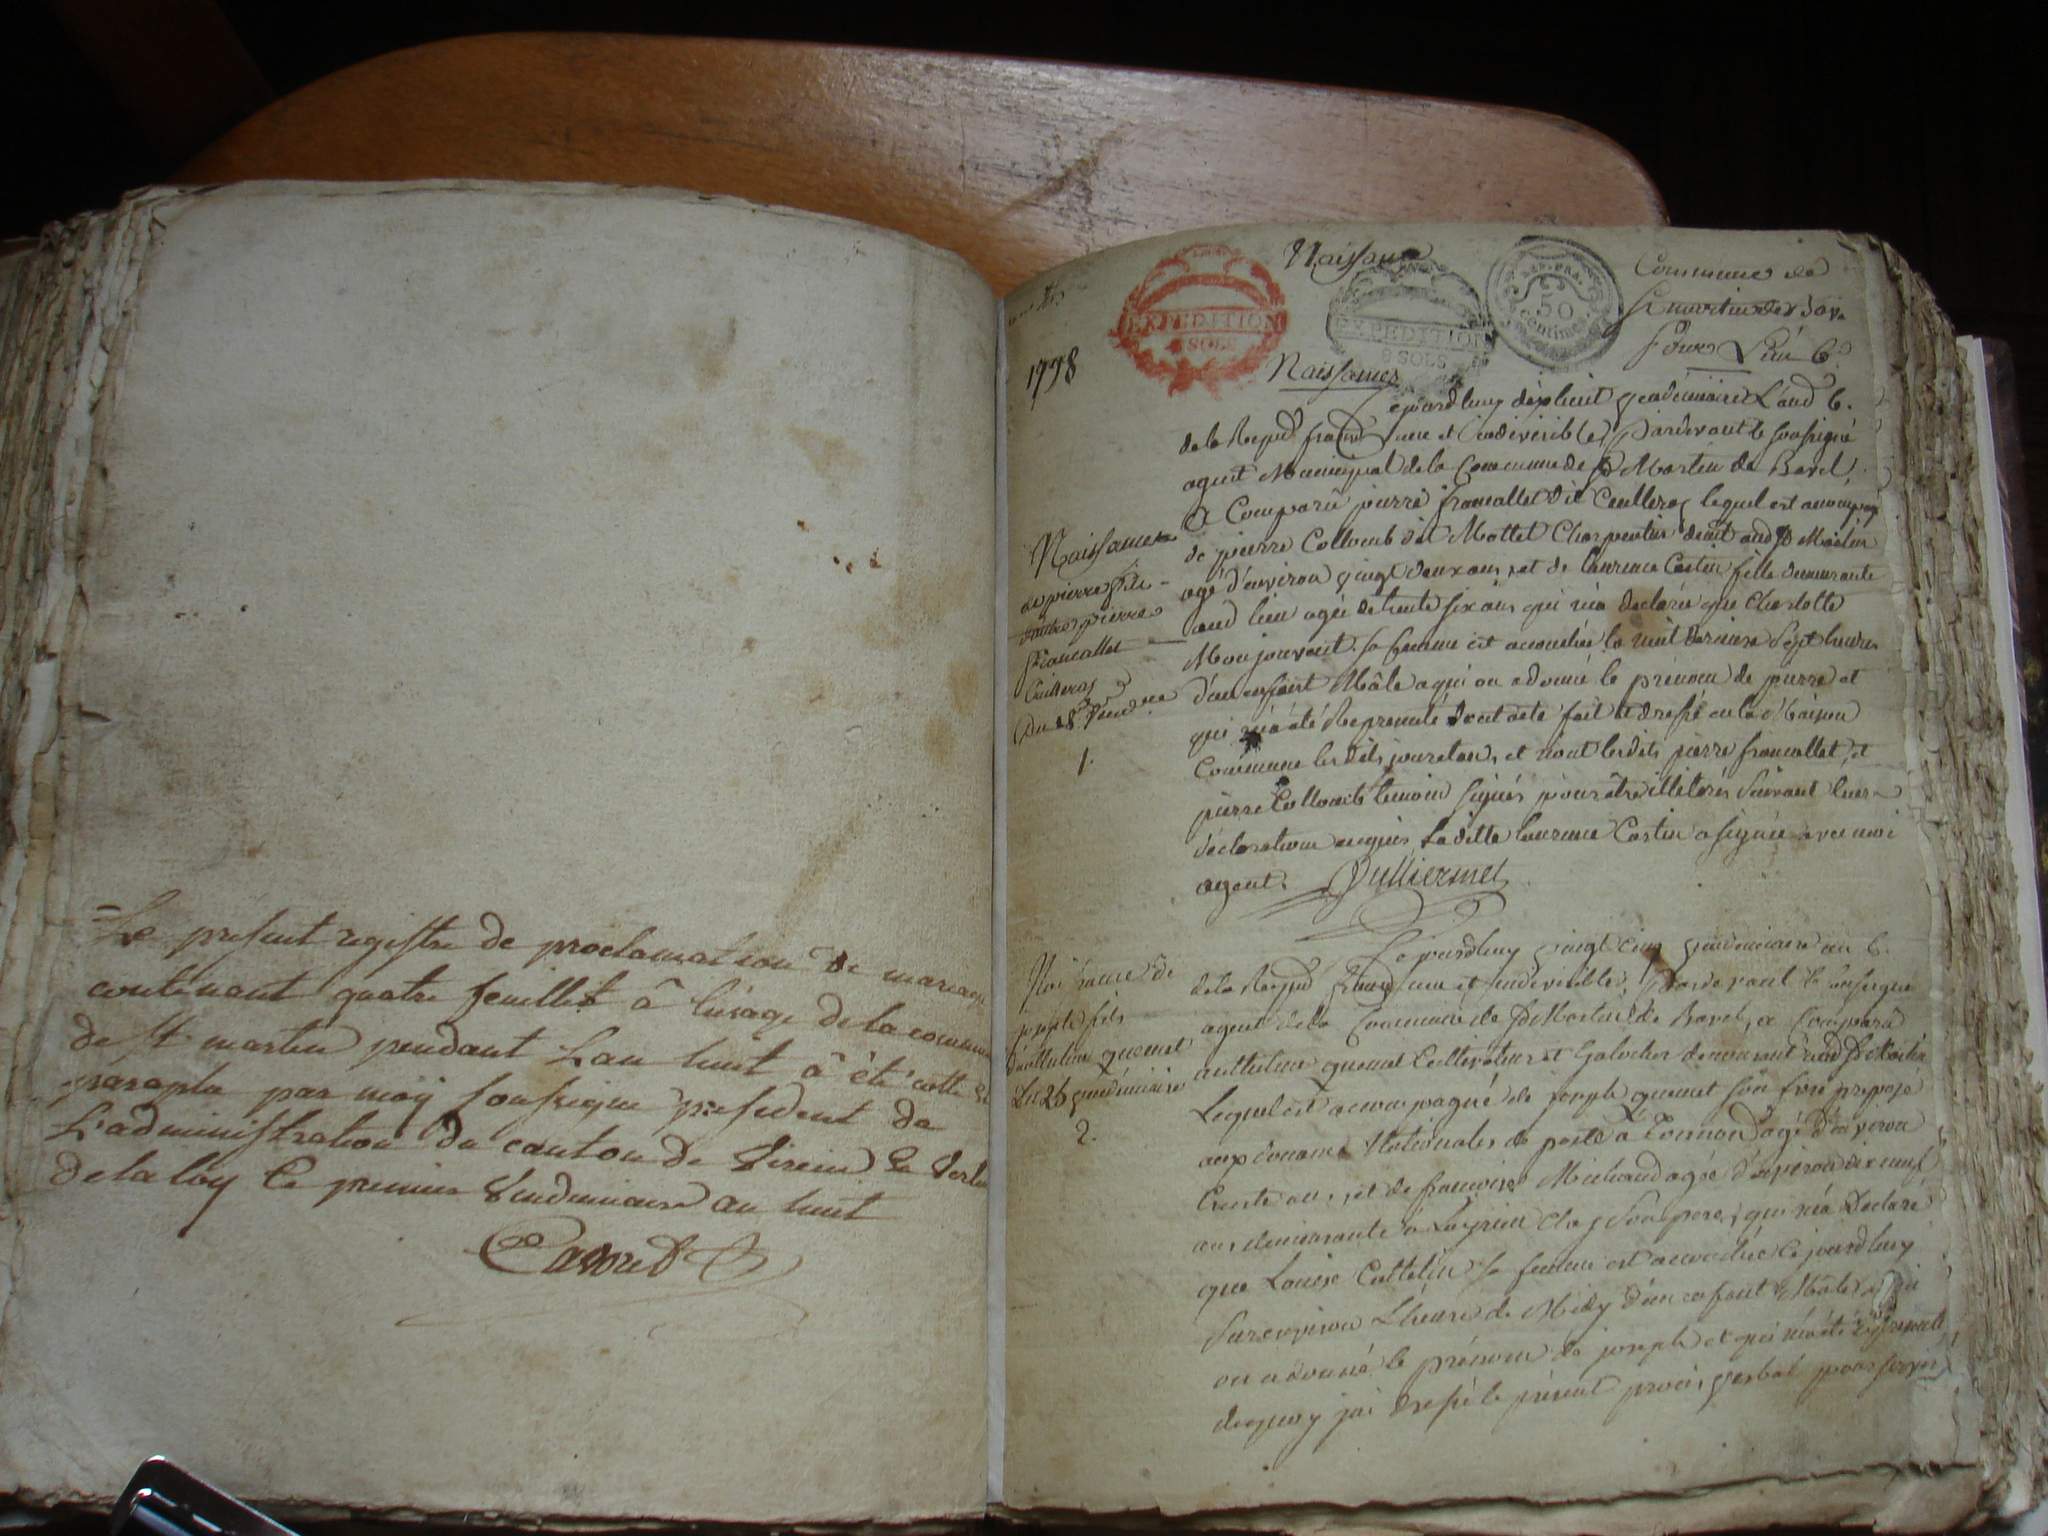 Le present registre de proclamation de mariage
contenant quatre feuillet â l'usage de la commune
de St martin pendant l'an huit â êté cotté et
paraphe par moy soussigne president de
L'administration du canton de Virieu Le
de la loy Le premier Vendemiaire an huit
Naissance
EXPEDITION
8 SOLS
EXPEDITION
8 SOLS
REP. FRA.
50
centimes
Commune de
St martin de
Pour L'an 6.
1798
Naissances
Cejourd'huy dixhuit Vendemiaire L'an 6.
de la Repub francs une et indivisible, Pardevant le soussigné
agent Municipal de la Commune de St Martin de Bavel,
a Comparû pierre francallet dit Cuilleras lequel est accompagné
de pierre Colloueb dit Mottet Charpentier demt aud St Martin
agé d'environ vingt deux ans, et de laurence Costin fille demeurante
aud lieu agée de trente six ans qui m'a declaré que Charlotte
Monjouvent sa femme est accouchée la nuit derniere Sept heures
d'un enfant Mâle a qui on a donné le prénom de pierre et
qui m'a été Representé dont acte fait et dressé en la Maison
Commune lesdits jour et an, et n'ont lesdits pierre francallet, et
pierre Colloueb temoin signés pour être illeterés suivant leur
declaration requis Laditte laurence Costin a signée avec moi
agent. Vulliermet
Naissance
de pierre fils
pierre
francallet
Cuilleras
Du 18 Vendre
1.
Cejourd'huy vingt cinq Vendemiaire an 6.
de la Repub francs une et indivisible, Pardevant le soussigne
agent de la Commune de St Martin de Bavel, a Comparû
anthelme quemet Cultivateur et Galocher demeurant aud St Martin
Lequel est accompagné de joseph quemet son frere preposé
aux douanes Nationales de poste a agé d'environ
trente ans, et de francoise Michaud agée d'environ dix neuf
ans demeurante a chez son pere, qui m'a Declaré
que Louise Cattelin sa femme est accouchée cejourd'huy
sur environ L'heure de Midy d'un enfant Mâle a qui
on a donné le prénom de joseph et qui m'a été représenté
dequoy j'ai dressé le présent procès verbal pour servir
Naissance de
joseph fils
d'anthelme quemet
Du 25 vendémiaire
2.